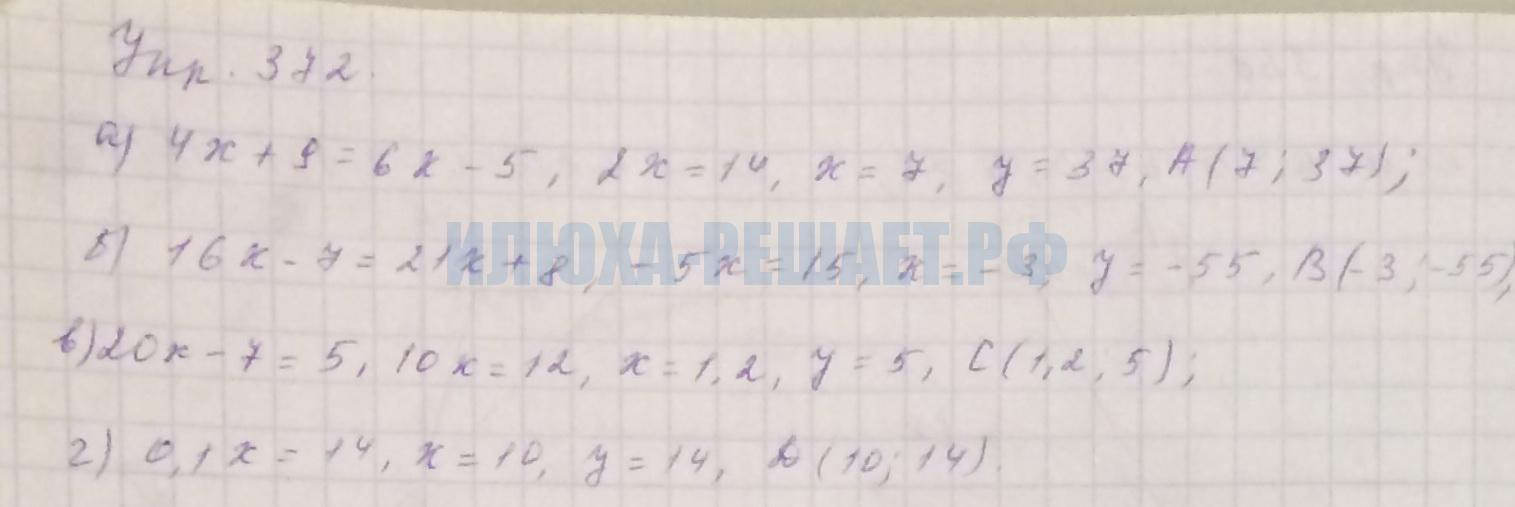 Упр. 372.
а) 4x + 9 = 6x - 5, 2x = 14, x = 7, y = 37, A(7; 37);
ИЛЮХА-РЕШАЕТ.РФ
б) 16x - 7 = 21x + 8, -5x = 15, x = -3, y = -55, B(-3; -55),
в) 20x - 7 = 5, 10x = 12, x = 1,2, y = 5, C(1,2; 5);
г) 0,1x = 14, x = 10, y = 14, D(10; 14).